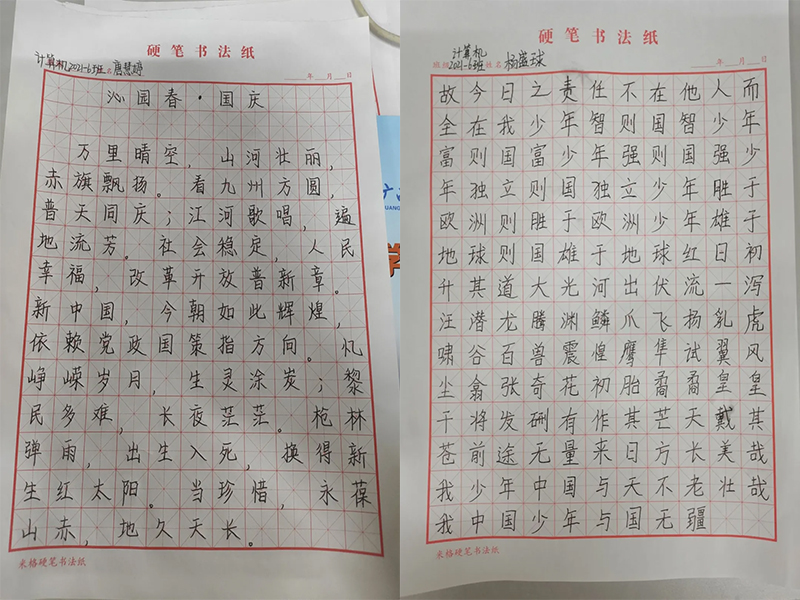 硬笔书法纸
计算机2021-6班 名 唐慧婷
年 月 日
沁园春·国庆
万里晴空，山河壮丽，
赤旗飘扬。看九州方圆，
普天同庆；江河歌唱，遍
地流芳。社会稳定，人民
幸福，改革开放普新章。
新中国，今朝如此辉煌，
依赖党政国策指方向。忆
峥嵘岁月，生灵涂炭；黎
民多难，长夜茫茫。枪林
弹雨，出生入死，换得新
生红太阳。当珍惜，永葆
山赤，地久天长。
米格硬笔书法纸
硬笔书法纸
班级 计算机2021-6班 姓名 杨益球
年 月 日
故今日之责任不在他人而
全在我少年智则国智少年
富则国富少年强则国强少
年独立则国独立少年胜于
欧洲则胜于欧洲少年雄于
地球则国雄于地球红日初
升其道大光河出伏流一泻
汪潜龙腾渊鳞爪飞扬乳虎
啸谷百兽震惶鹰隼试翼风
尘翕张奇花初胎矞矞皇皇
干将发硎有作其芒天戴其
苍前途无量来日方长美哉
我少年中国与天不老壮哉
我中国少年与国无疆
米格硬笔书法纸